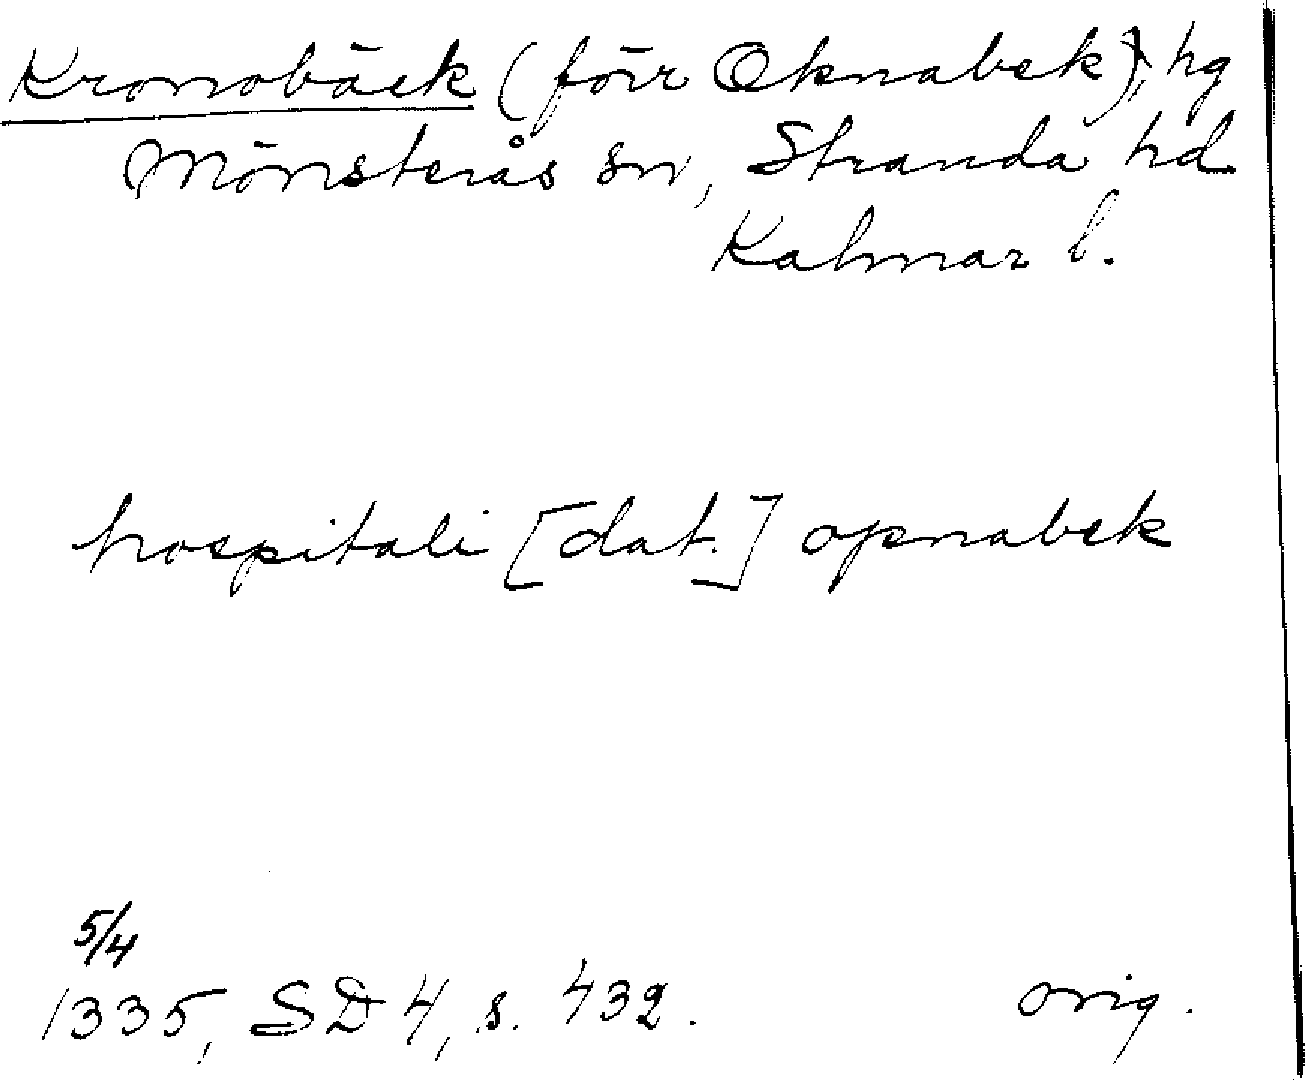 Kronobäck (förr Oknabek), hg
Mönsterås sn, Stranda hd
Kalmar l.
hospitali [dat.] opnabek
5/4
1335, SD 4, s. 432.
orig.